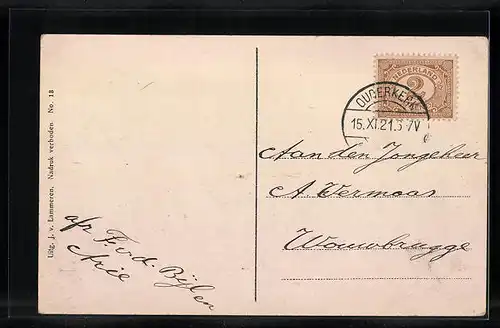 Uitg. J. v. Lammeren. Nadruk verboden No. 18
NEDERLAND
2½
OUDERKERK
15.XI.21.5-7V
Aan den Jongeheer
A Vermaas
Woubrugge
afz F. v.d. Bijl
Arie